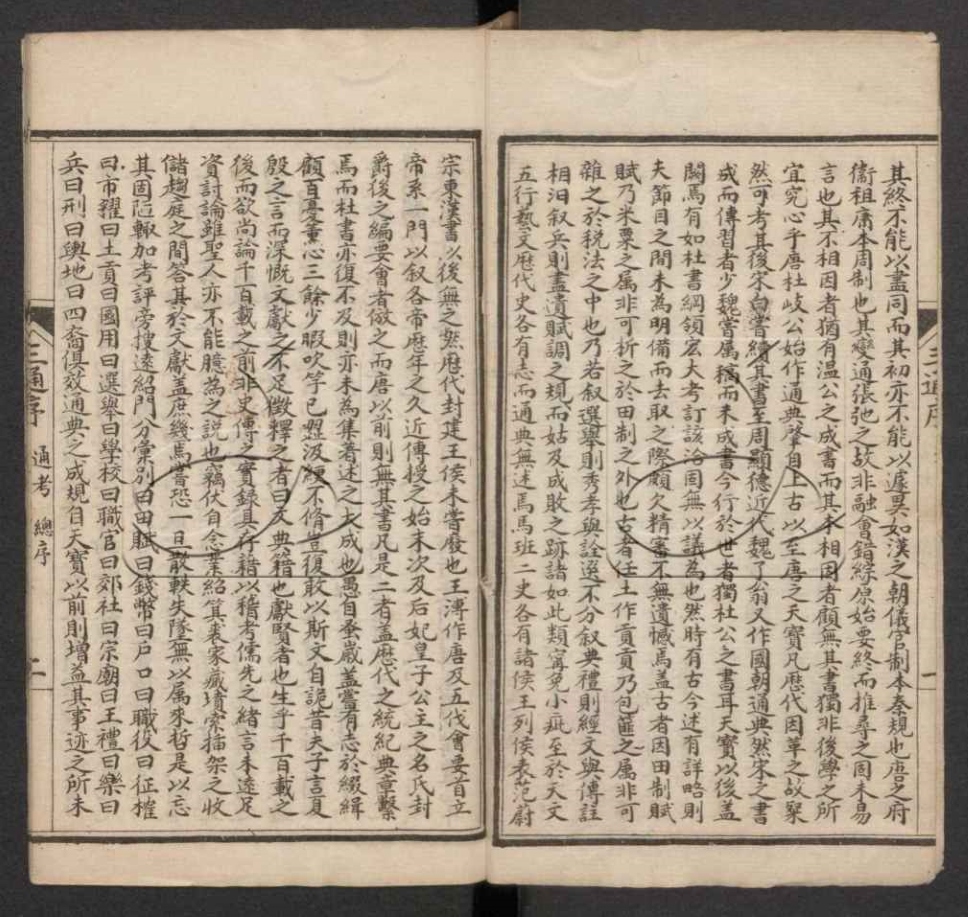 其終不能以盡同而其初亦不能以遽異如漢之朝儀官制本秦規也唐之府
衞租庸本周制也其變通張弛之故非融會錯綜原始要終而推尋之固未易
言也其不相因者猶有溫公之成書而其本相因者顧無其書獨非後學之所
宜究心乎唐杜岐公始作通典肇自上古以至唐之天寶凡歷代因革之故粲
然可考其後宋白嘗續其書至周顯德近代魏了翁又作國朝通典然宋之書
成而傳習者少魏嘗屬稿而未成書今行於世者獨杜公之書耳天寶以後蓋
闕焉有如杜書綱領宏大考訂該洽固無以議為也然時有古今述有詳略則
夫節目之間未為明備而去取之際頗欠精審不無遺憾焉蓋古者因田制賦
賦乃米粟之屬非可析之於田制之外也古者任土作貢貢乃包篚之屬非可
雜之於稅法之中也乃若叙選舉則秀孝與銓選不分叙典禮則經文與傳註
相汨叙兵則盡遺賦調之規而姑及成敗之跡諸如此類寧免小疵至於天文
五行藝文歷代史各有志而通典無述焉馬班二史各有諸侯王列侯表范蔚
三通序
一
宗東漢書以後無之然歷代封建王侯未嘗廢也王溥作唐及五代會要首立
帝系一門以叙各帝歷年之久近傳授之始末次及后妃皇子公主之名氏封
爵後之編要會者倣之而唐以前則無其書凡是二者蓋歷代之統紀典章繫
焉而杜書亦復不及則亦未為集著述之大成也愚自蚤歲蓋嘗有志於綴緝
顧百憂薰心三餘少暇吹竽已濫汲綆不脩豈復敢以斯文自詭昔夫子言夏
殷之言而深慨文獻之不足徵釋之者曰文典籍也獻賢者也生乎千百載之
後而欲尚論千百載之前非史傳之實錄具存籍以稽考儒先之緒言未遠足
資討論雖聖人亦不能臆為之說也竊伏自念業紹箕裘家藏墳索插架之收
儲趨庭之間答其於文獻蓋庶幾焉嘗恐一旦散軼失墜無以屬來哲是以忘
其固陋輒加考評旁搜遠紹門分彙別曰田賦曰錢幣曰戶口曰職役曰征榷
曰市糴曰土貢曰國用曰選舉曰學校曰職官曰郊社曰宗廟曰王禮曰樂曰
兵曰刑曰輿地曰四裔俱效通典之成規自天寶以前則增益其事迹之所未
三通序
通考 總序
二